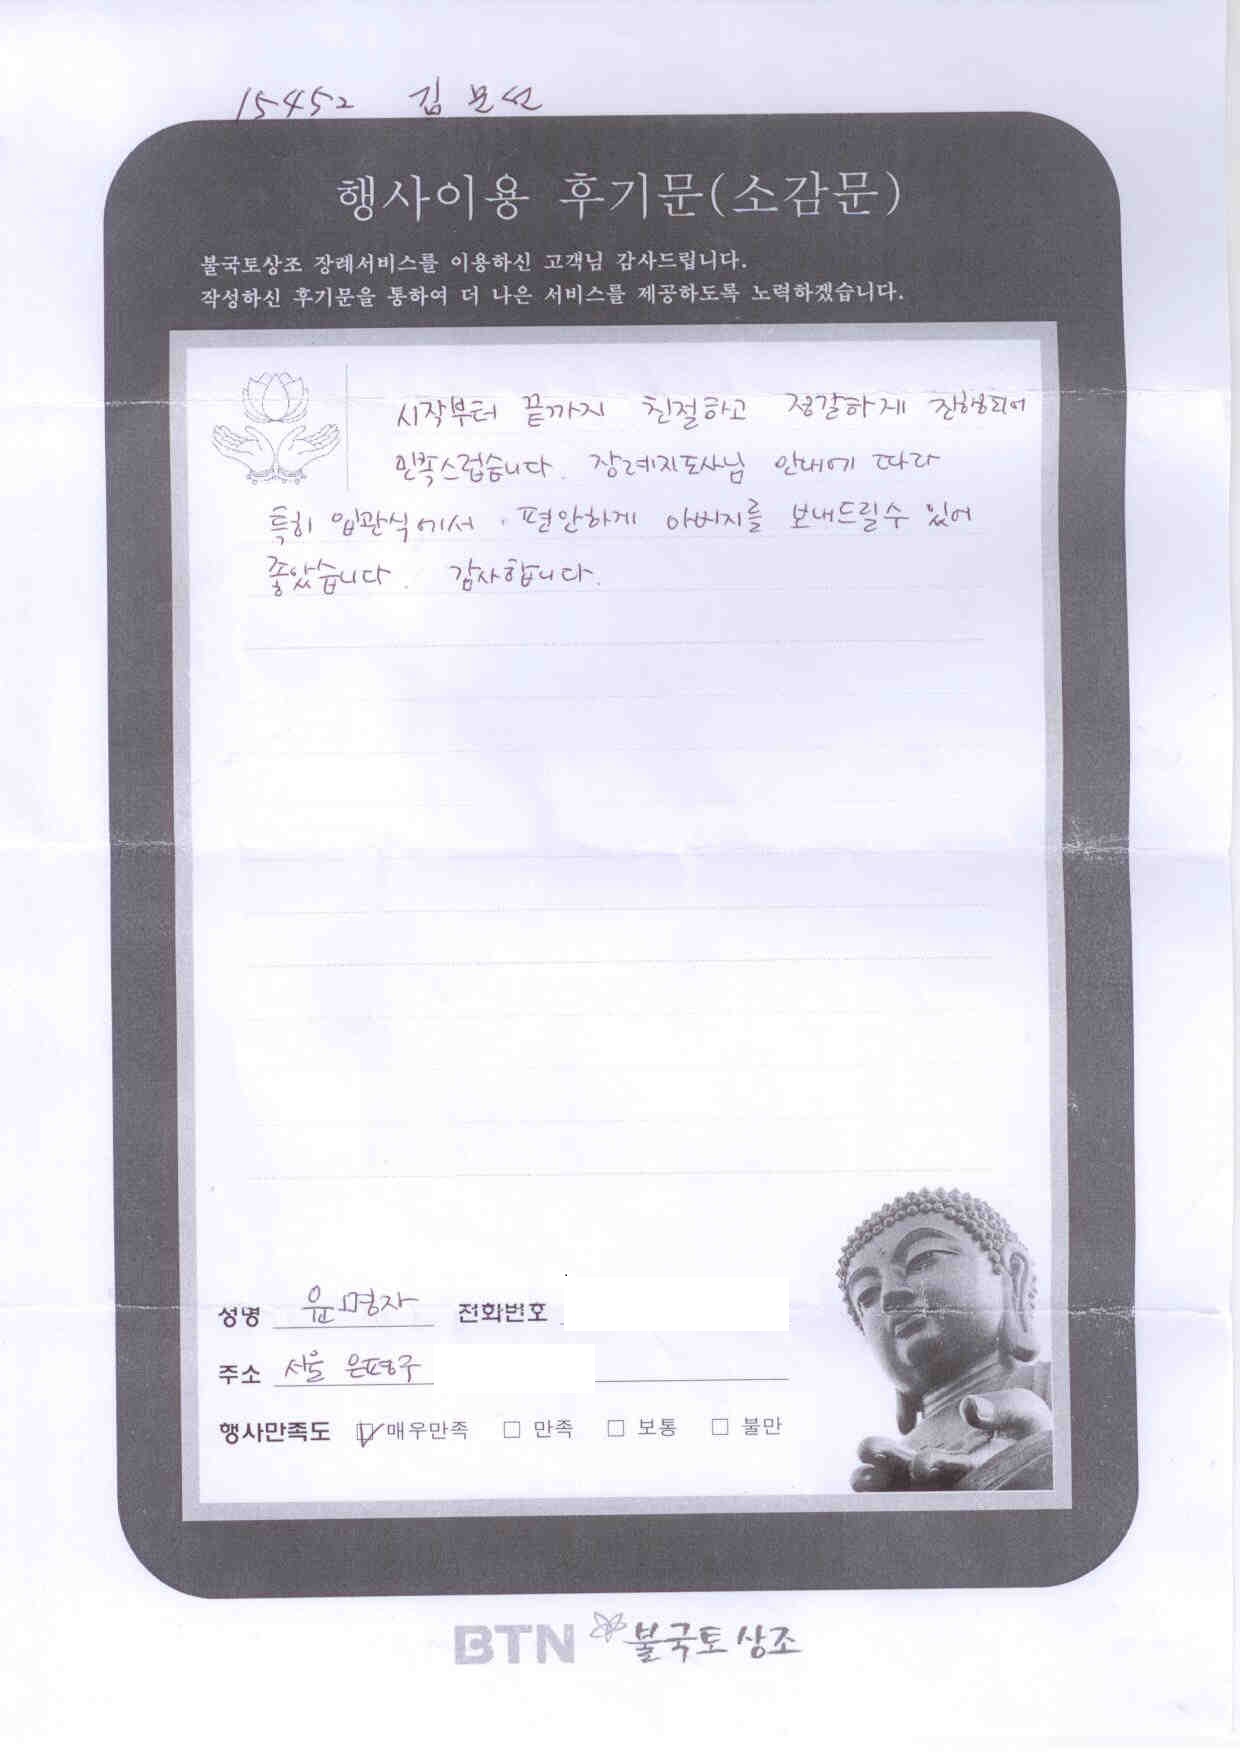 15452 김문선
행사이용 후기문(소감문)
불국토상조 장례서비스를 이용하신 고객님 감사드립니다.
작성하신 후기문을 통하여 더 나은 서비스를 제공하도록 노력하겠습니다.
시작부터 끝까지 친절하고 정갈하게 진행되어
만족스럽습니다. 장례지도사님 안내에 따라
특히 입관식에서 편안하게 아버지를 보내드릴수 있어
좋았습니다. 감사합니다.
성명 윤명자 전화번호
주소 서울 은평구
행사만족도 매우만족 만족 보통 불만
BTN 불국토상조